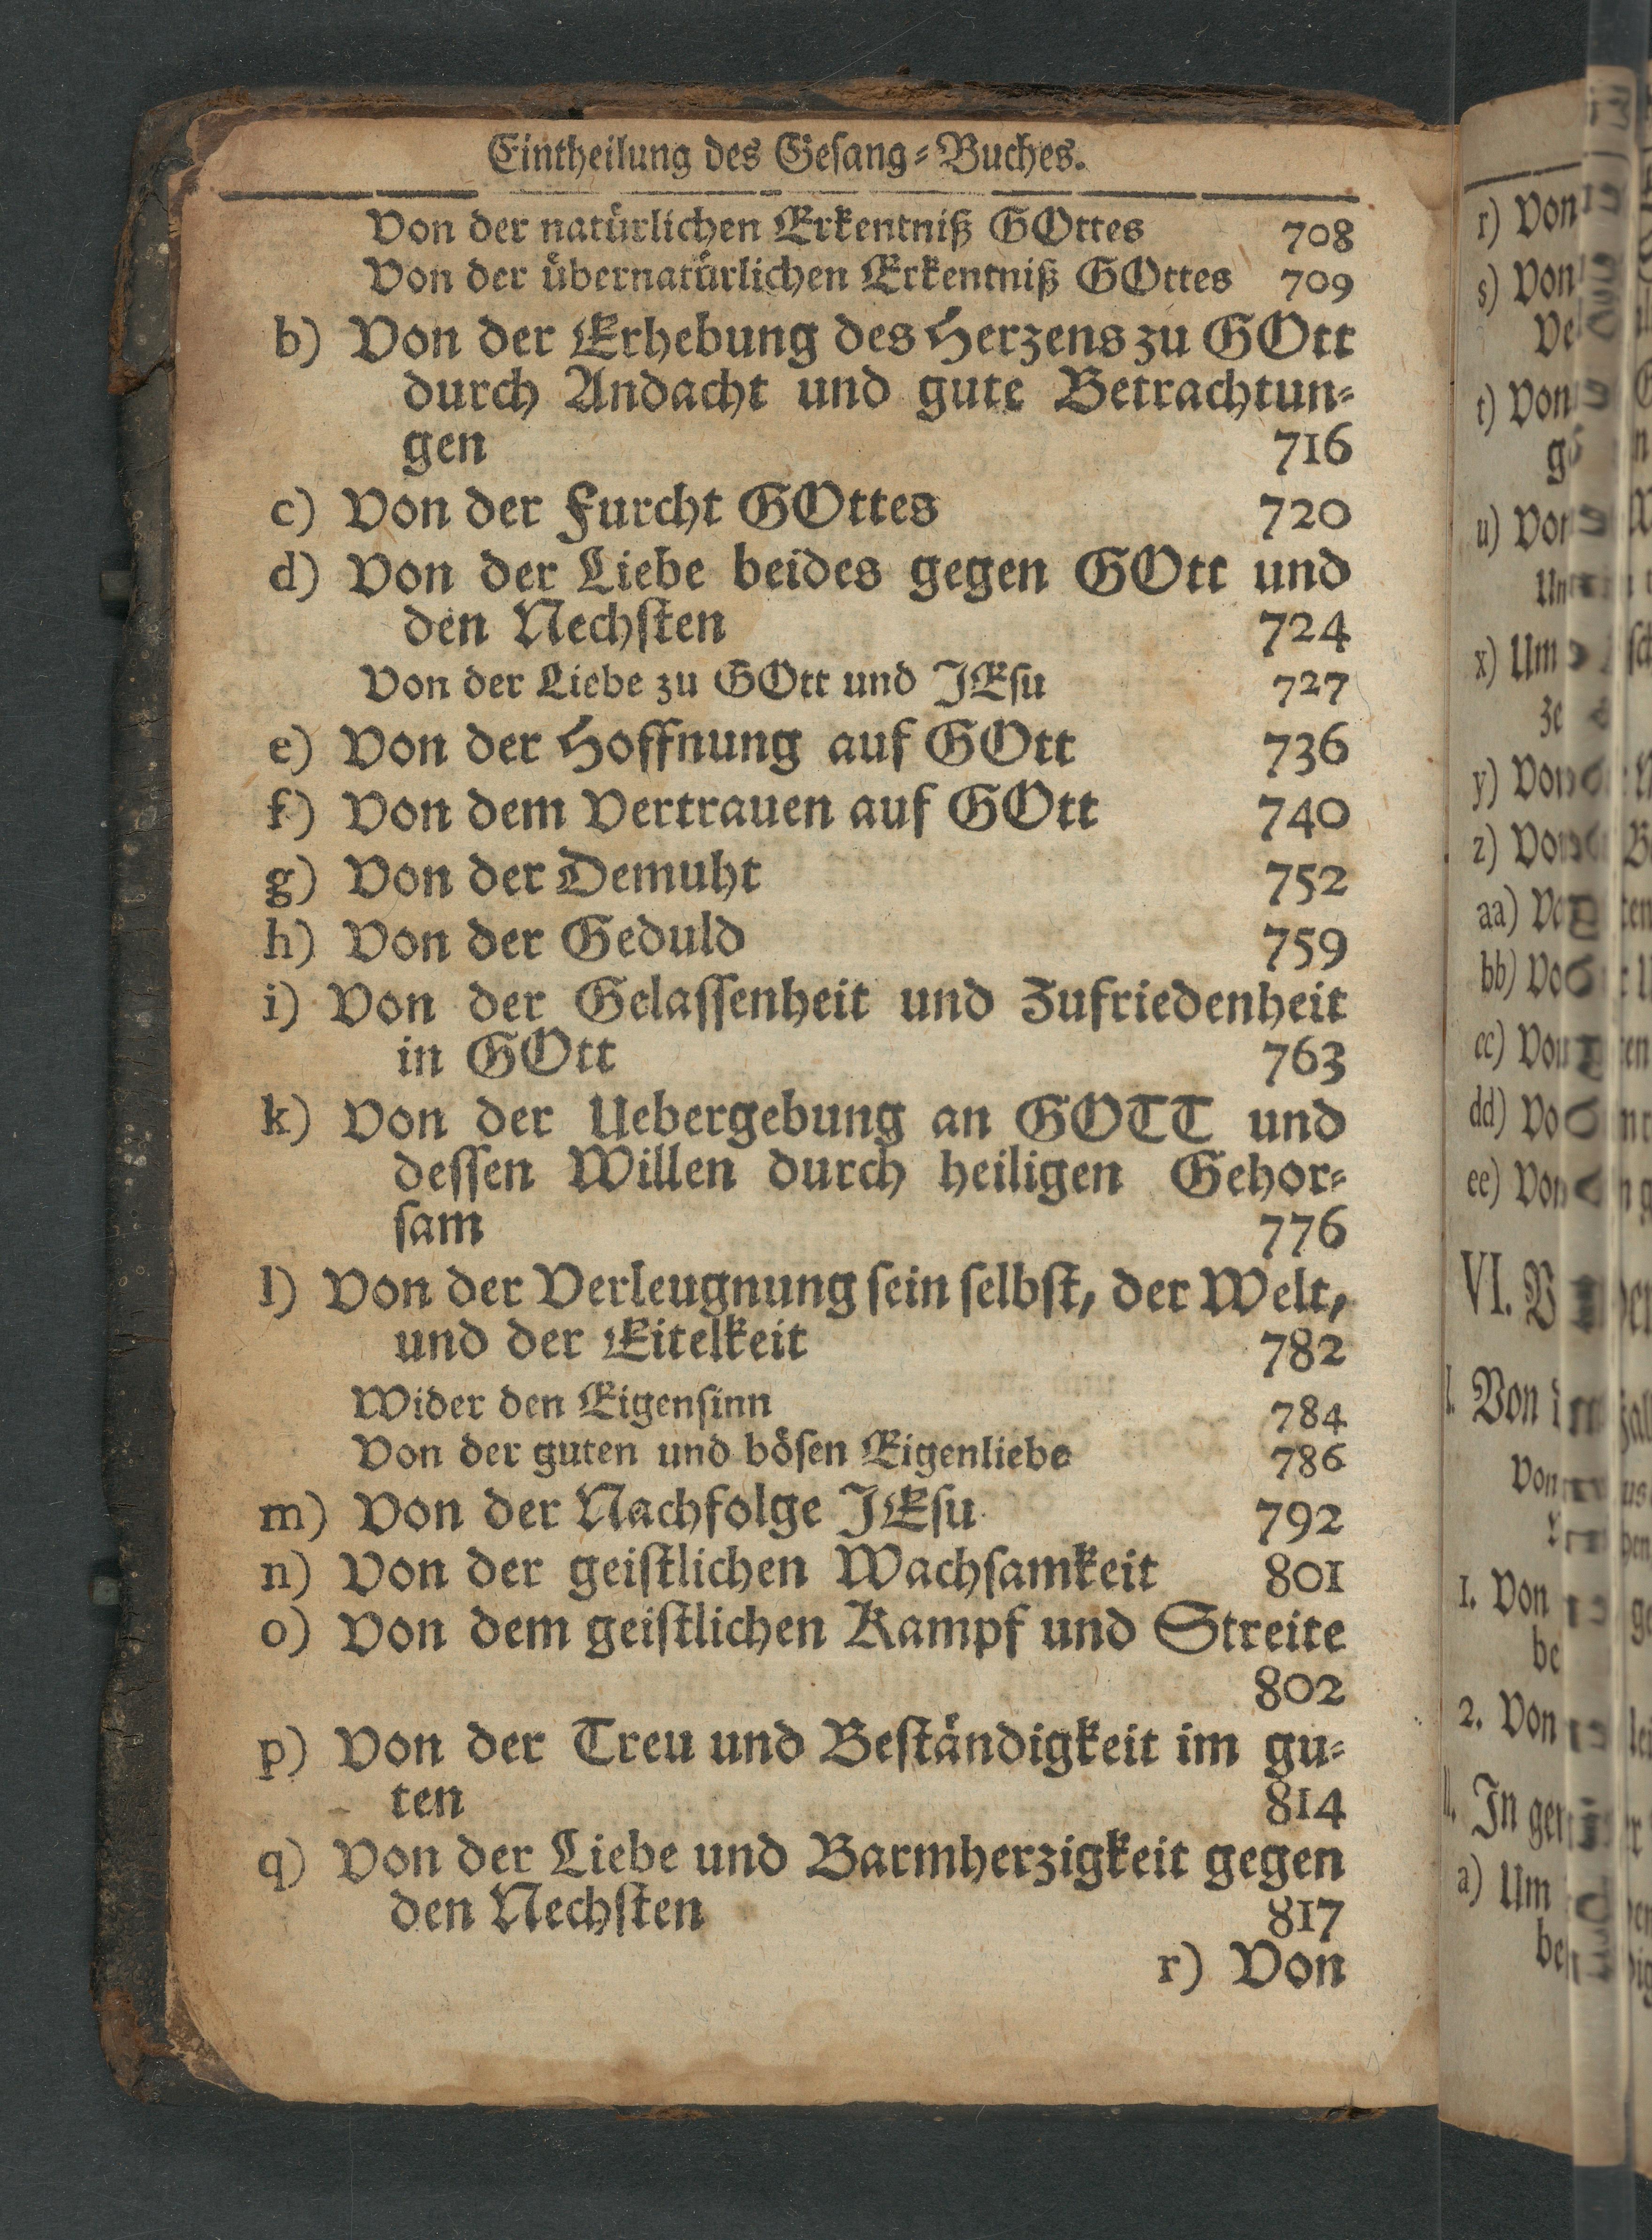 Eintheilung des Geſang-Buches.
Von der natürlichen Erkentniß GOttes 708
Von der übernatürlichen Erkentniß GOttes 709
b) Von der Erhebung des Herzens zu GOtt
durch Andacht und gute Betrachtun-
gen 716
c) Von der Furcht GOttes 720
d) Von der Liebe beides gegen GOtt und
den Nechſten 724
Von der Liebe zu GOtt und JEſu 727
e) Von der Hoffnung auf GOtt 736
f) Von dem Vertrauen auf GOtt 740
g) Von der Demuht 752
h) Von der Geduld 759
i) Von der Gelaſſenheit und Zufriedenheit
in GOtt 763
k) Von der Uebergebung an GOTT und
deſſen Willen durch heiligen Gehor-
ſam 776
l) Von der Verleugnung ſein ſelbſt, der Welt,
und der Eitelkeit 782
Wider den Eigenſinn 784
Von der guten und böſen Eigenliebe 786
m) Von der Nachfolge JEſu 792
n) Von der geiſtlichen Wachſamkeit 801
o) Von dem geiſtlichen Kampf und Streite
802
p) Von der Treu und Beſtändigkeit im gu-
ten 814
q) Von der Liebe und Barmherzigkeit gegen
den Nechſten 817
r) Von
r) Von
s) Von
t) Von
u)
x) Um
y) Von
z)
aa)
bb)
cc)
dd)
ee) Von
VI.
Von
1. Von
2. Von
In
a) Um